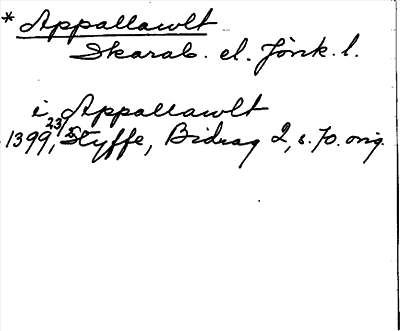 * Appallawlt
Skarab. el. Jönk. l.
i Appallawlt
1399, 23/2 Styffe, Bidrag 2, s. 70. orig.